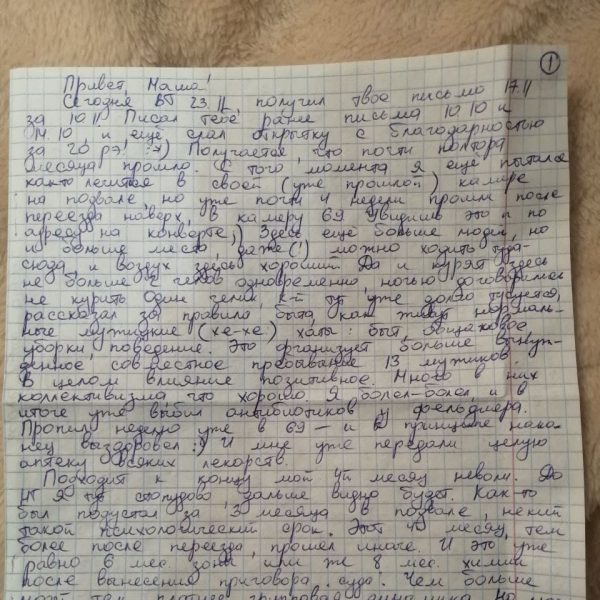 1
Привет, Маша!
Сегодня, ВТ 23.11, получил твое письмо 17.11
за 10.11 Писал тебе ранее письма 10.10 и
14.10, и ещё слал открытку с благодарностью
за 20 рэ! :) Получается, что почти полтора
месяца прошло. С того момента я ещё пытался
как-то лечиться в своей (уже прошлой) камере
на подвале, но уже почти 4 недели прошли после
переезда наверх, в камеру 69 Увидишь это и по
адресу на конверте ;) Здесь ещё больше людей, но
и больше места, даже (!) можно ходить туда-
сюда, и воздух здесь хороший. Да и курят здесь
не больше челов одновременно, ночью договорились
не курить Один челик, к-й тут уже долго тусуется,
рассказал за правила быта, как живут нормаль-
ные мужицкие (хе-хе) хаты: быт, общаковое,
уборки, поведение. Это организует больше вынуж-
денное совместное пребывание 13 мужиков.
В целом влияние позитивное. Много в них
коллективизма, что хорошо. Я болел-болел, и в
итоге уже выбил антибиотиков у фельдшера.
Пропил неделю уже в 69 — и в принципе нако-
нец выздоровел :) И мне уже передали целую
аптеку всяких лекарств.
Подходит к концу мой 4й месяц неволи. До
НГ я тут стопудово, дальше видно будет. Как-то
был подустал за 3 месяца в подвале, некий
такой психологический срок. Этот 4й месяц, тем
более после переезда, прошел иначе. И это уже
равно 6 мес. зоны или же 8 мес. химии
после вынесения приговора суда. Чем больше